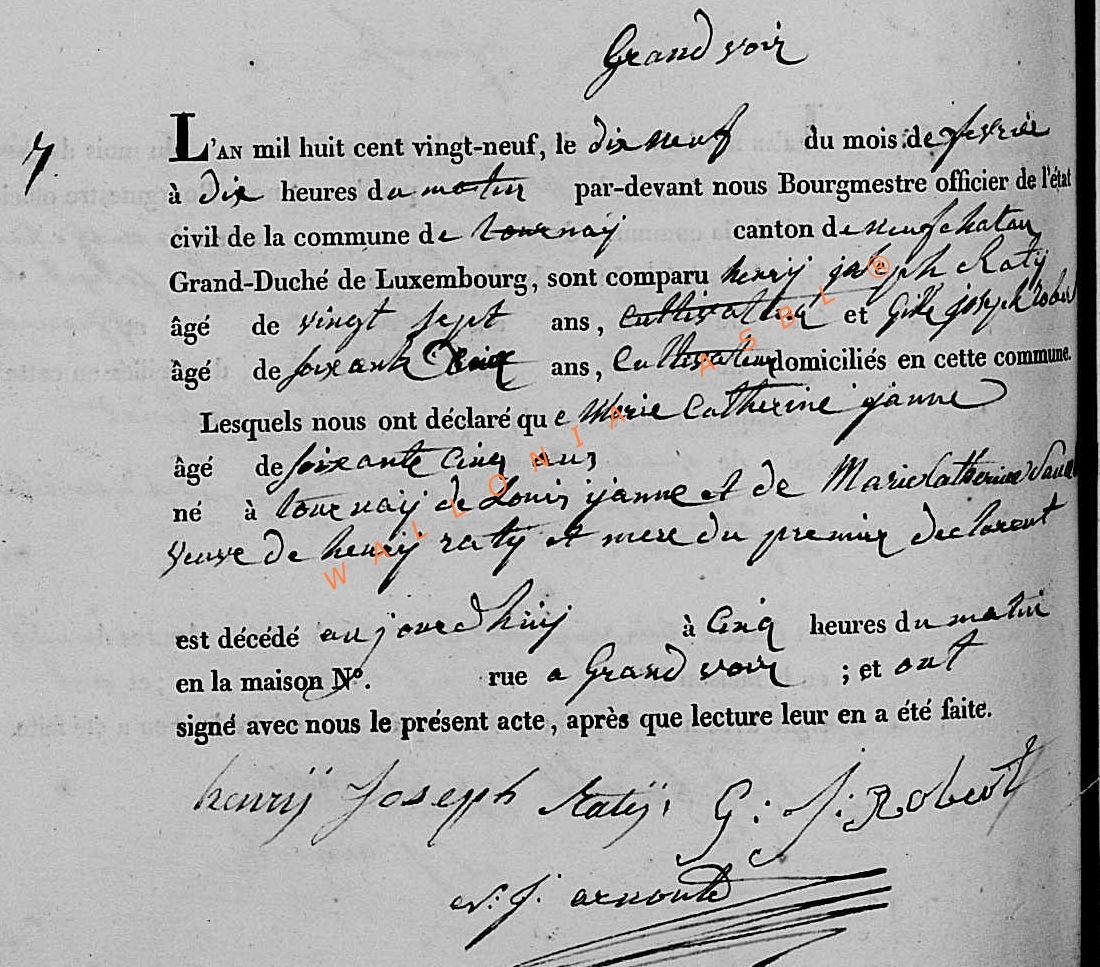 Grand voir
7.
L'AN mil huit cent vingt-neuf, le dix neuf du mois de fevrier
à dix heures du matin par-devant nous Bourgmestre officier de l'état
civil de la commune de tournaÿ canton de neufchatau
Grand-Duché de Luxembourg, sont comparu henrij joseph Ratÿ
âgé de vingt sept ans, cultivateur et Gille joseph Rober
âgé de soixante Cinq ans, Cultivateur domiciliés en cette commune.
Lesquels nous ont déclaré que Marie Catherine janne
âgé de soixante Cinq ans
né à tournaÿ de Louis janne et de Marie Catherine
veuve de henrij ratÿ et mere du premier declarent
est décédé aujourdhuij à Cinq heures du matin
en la maison N°. rue a Grand voir ; et ont
signé avec nous le présent acte, après que lecture leur en a été faite.
henrÿ Joseph Ratÿ G: J: Robert
arnould
WALLONIA ASBL ©